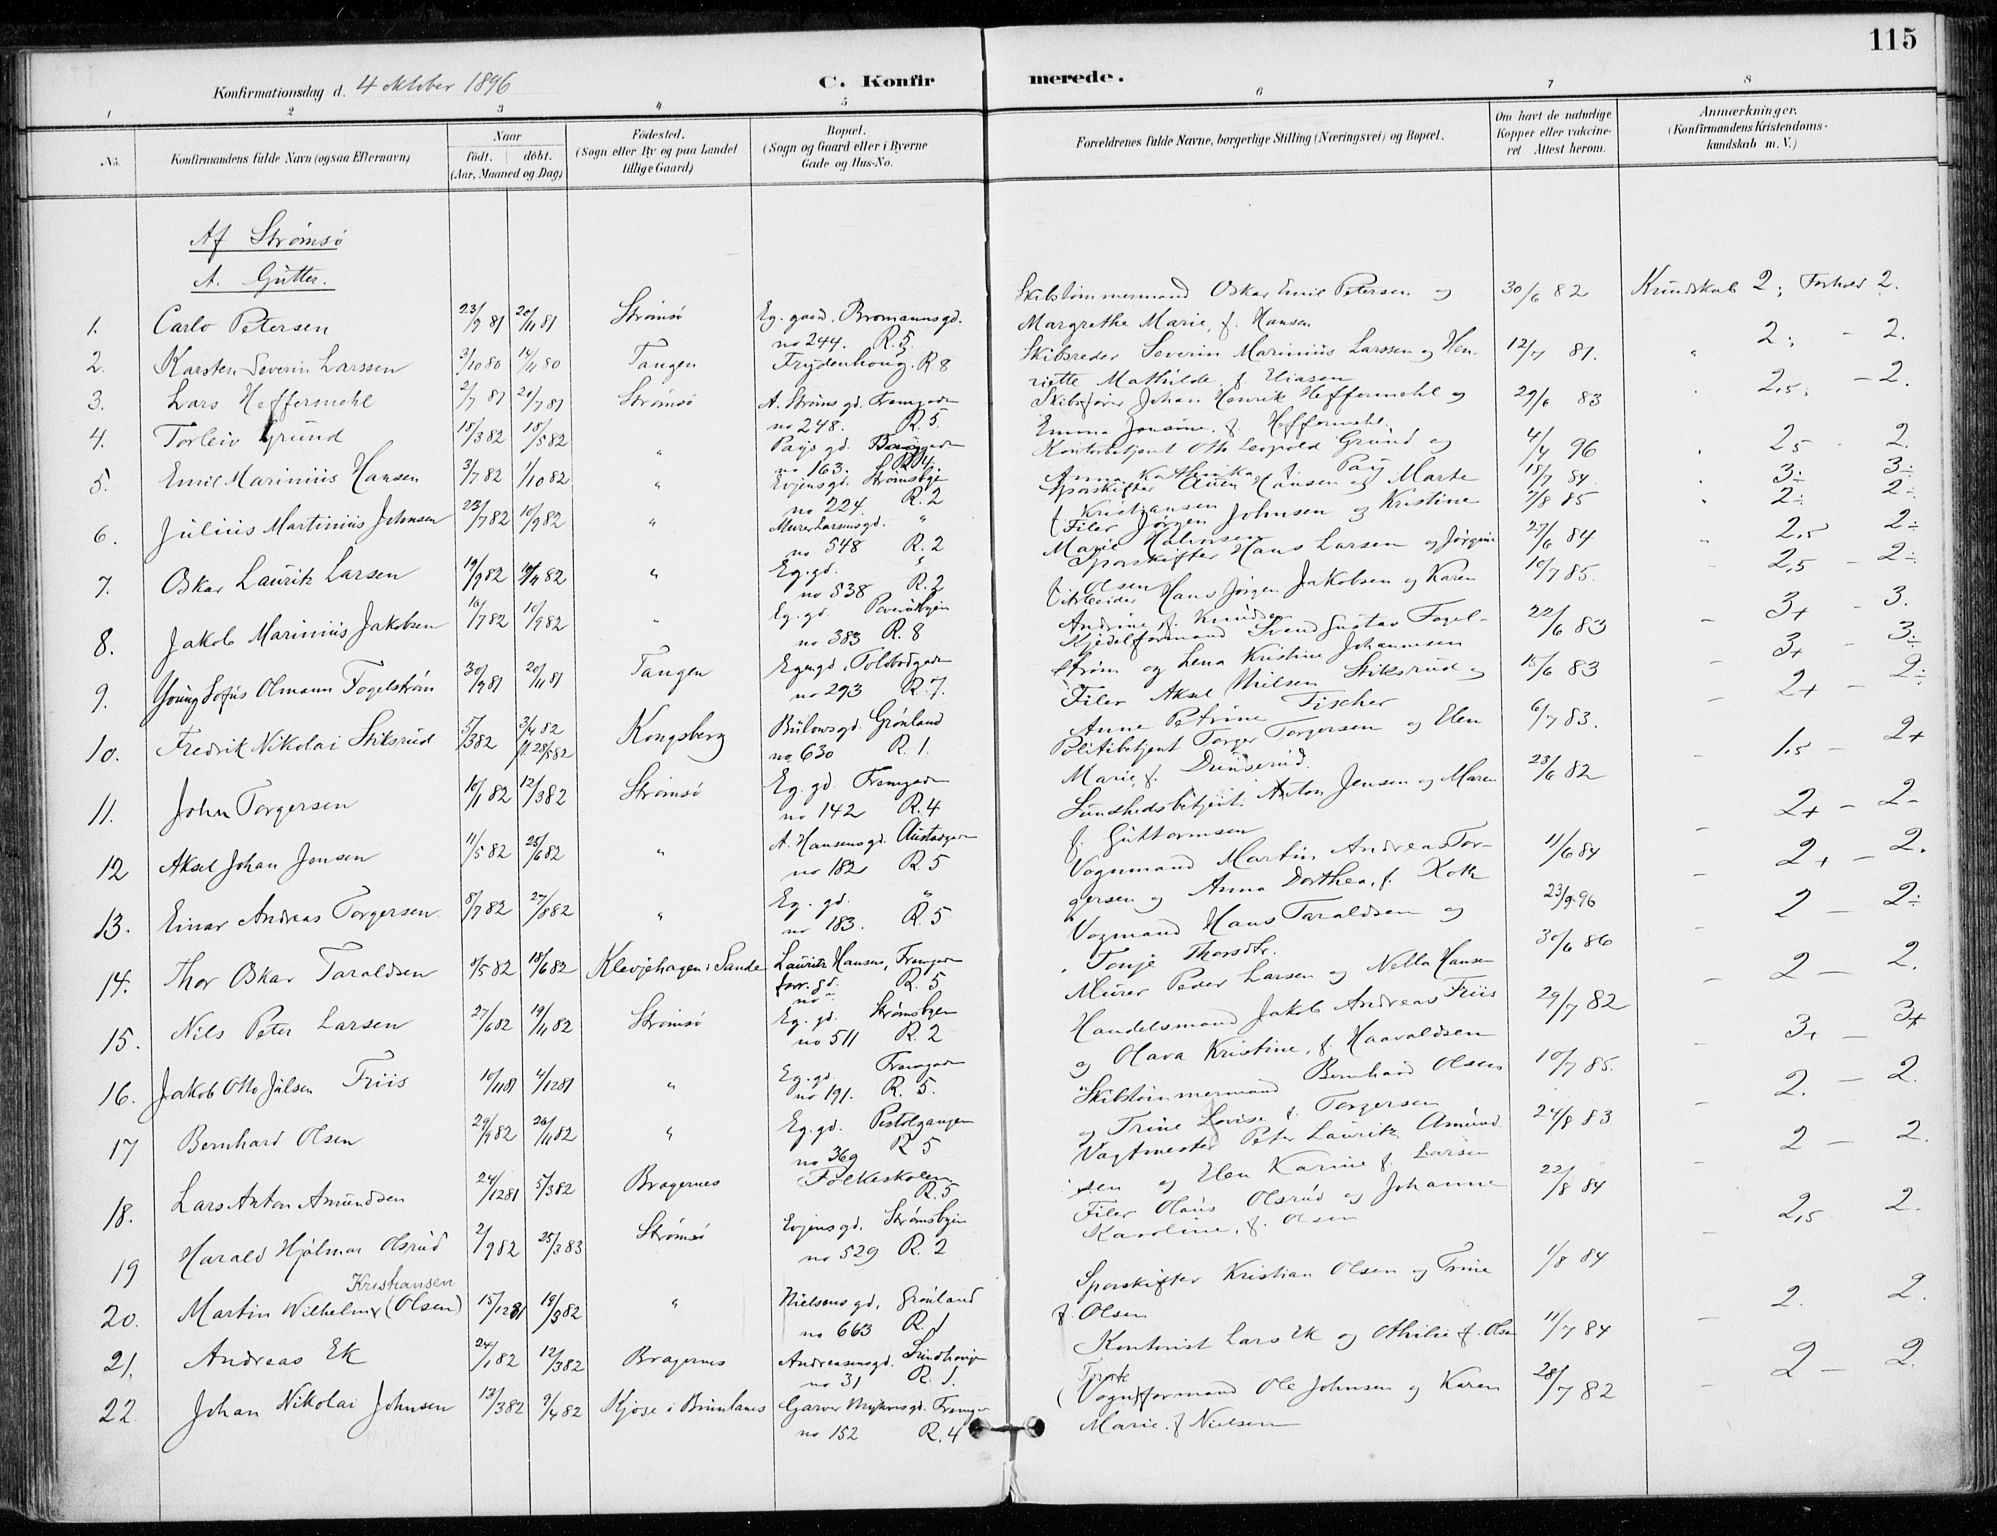 115
Konfirmationsdag d. 4 oktober 1896
C. Konfirmerede.
1 2 3 4 5 6 7 8
No.
Konfirmandens fulde Navn (ogsaa Efternavn)
Naar
födt. döbt.
(Aar, Maaned og Dag)
Födested.
(Sogn eller By og paa Landet
tillige Gaard)
Bopæl.
(Sogn og Gaard eller i Byerne
Gade og Hus-No.
Forældrenes fulde Navne, borgerlige Stilling (Næringsvei) og Bopæl.
Om havt de naturlige
Kopper eller vakcine-
ret. Attest herom.
Anmærkninger.
(Konfirmandens Kristendoms-
kundskab m. V.)
Af Strømsø
A. Gutter.
1. Carlo Petersen 23/9 81 20/11 81 Strømsø Eg. gaard. Bromannsgd. no 244. R. 5. Skibstømmermand Oskar Emil Petersen og Margrethe Marie, f. Hansen 30/6 82 Kundskab 2; Forhold 2.
2. Karsten Severin Larssen 3/10 80 14/11 80 Tangen Frydenhoug. R. 8 Skibsreder Severin Marinius Larssen og Henriette Mathilde, f. Eliasen 12/7 81. 2; - 2.
3. Lars Heffermehl 2/7 81 20/7 81 Strømsø A. Strøms gd. Fremgaden no 248. R. 5. Skibsfører Johan Henrik Heffermehl og Emma Jensine, f. Heffermehl. 29/6 83 2,5; - 2.
4. Torleiv Grund 18/3 82 18/5 82 " no 163. Kontorbetjent Otto Leopold Grund og Anna Kathinka f. Paÿ 4/4 96 2,5 - 2.
5. Emil Marinius Hansen 3/7 82 1/10 82 " Evjensgd. Strømsbyen no 224. R. 2 Sporskifter Hansen og Marte f. Kristjansen 18/7 84. 3÷ 3÷
6. Julius Martinius Johnsen 23/7 82 10/9 82 " Murer Larsensgd. " no 548 R. 2 Filer Jørgen Johnsen og Kristine Marie Halvorsen 7/8 85 2÷ 2÷
7. Oskar Lauritz Larsen 19/9 82 19/11 82 " Eg. gd. " no 538 R. 2 Sporskifter Hans Larsen og Jørgine f. Olsen 27/6 84 2,5 2÷
8. Jakob Marinius Jakobsen 16/7 82 10/9 82 " Eg. gd. no 383 R. 8 Arbeider Hans Jørgen Jakobsen og Karen Andrine f. Knudsen 10/7 85. 2,5 - 2÷
9. Young Sofus Olmann Fogelstrøm 30/9 81 20/11 81 Tangen Egengd. Toldbodgaden no 293 R. 7. Kjedelformand Svend Gustav Fogelstrøm og Lena Kristine Johannesen 22/6 83 3+ - 3.
10. Fredrik Nikolai Stiksrud 5/3 82 3/4 82 Kongsberg Bülowsgd. Grønland no 630 R. 1. Filer Aksel Nielsen Stiksrud og Anne Petrine Fischer 15/6 83 3+ - 3÷
11. John Torgersen 10/1 82 12/3 82 Strømsø Eg. gd. Fremgaden no 142 R. 4 Politibetjent Torger Torgersen og Elen Marie, f. Dunserud. 6/7 83. 2+ - 2÷
12 Aksel Johan Jensen 11/5 82 25/6 82 " A. Hansens gd. Austadgaden no 182 R. 5 Sundhedsbetjent Anton Jensen og Maren f. Guttormsen 23/6 82 1,5 - 2+
13. Einar Andreas Torgersen 8/7 82 27/8 82 " Eg. gd. " no 183. R. 5 Vognmand Martin Andreas Torgersen og Anna Dorthea, f. Roth 11/6 84 2+ - 2-
14. Thor Oskar Taraldsen 9/5 82 18/6 82 Klevjehagen i Sande Lauritz Hansens, Fremgaden forr. gd. no " R. 5 Vogmand Hans Taraldsen og Tonje Thorsdtr. 23/9 96 2+ - 2.
15. Nils Peter Larsen 27/6 82 19/11 82 Strømsø Eg. gd. Strømsbyen no 511 R. 2 Murer Peder Larsen og Nella Hansen 30/6 86 2 - 2÷
16. Jakob Otto Julsen Friis 10/11 81 4/12 81 " Eg. gd. Fremgaden no 191. R. 5. Handelsmand Jakob Andreas Friis og Olava Kristine, f. Haavaldsen 29/7 82 2 - 2.
17 Bernhard Olsen 29/9 82 26/11 82 " Eg. gd. Pistolgangen no 369 R. 5 Skibstømmermand Bernhard Olsen og Trine Lovise, f. Torgersen 10/7 85. 3+ - 3+
18. Lars Anton Amundsen 24/12 81 5/3 82 Bragernes Folkeskolen R. 5 Vagtmester Peter Lauritz Amundsen og Elen Karine f. Larsen 24/8 83 2. - 2.
19 Harald Hjalmar Olsrud 2/9 82 25/3 83 Strømsø Evjensgd. Strømsbyen no 529 R. 2 Filer Olaus Olsrud og Johanne Karoline, f. Olsen 22/8 84 2 - 2.
20. Martin Wilhelm Kristiansen (Olsen) 15/12 81 19/3 82 " Nielsens gd. Grønland no 663 R. 1 Sporskifter Kristian Olsen og Trine f. Olsen 1/8 84 2,5 2.
21. Andreas Ek 24/1 82 12/3 82 Bragernes Andreasensgd. no 31 R. 1. Kontorist Lars Ek og Othilie f. Olsen 11/7 84 2. 2.
22. Johan Nikolai Johnsen 13/3 82 9/4 82 Kjose i Brunlanes Garver no 152 R. 4 Vognformand Ole Johnsen og Karen Marie. f Nielsen 28/7 82 2 - 2.